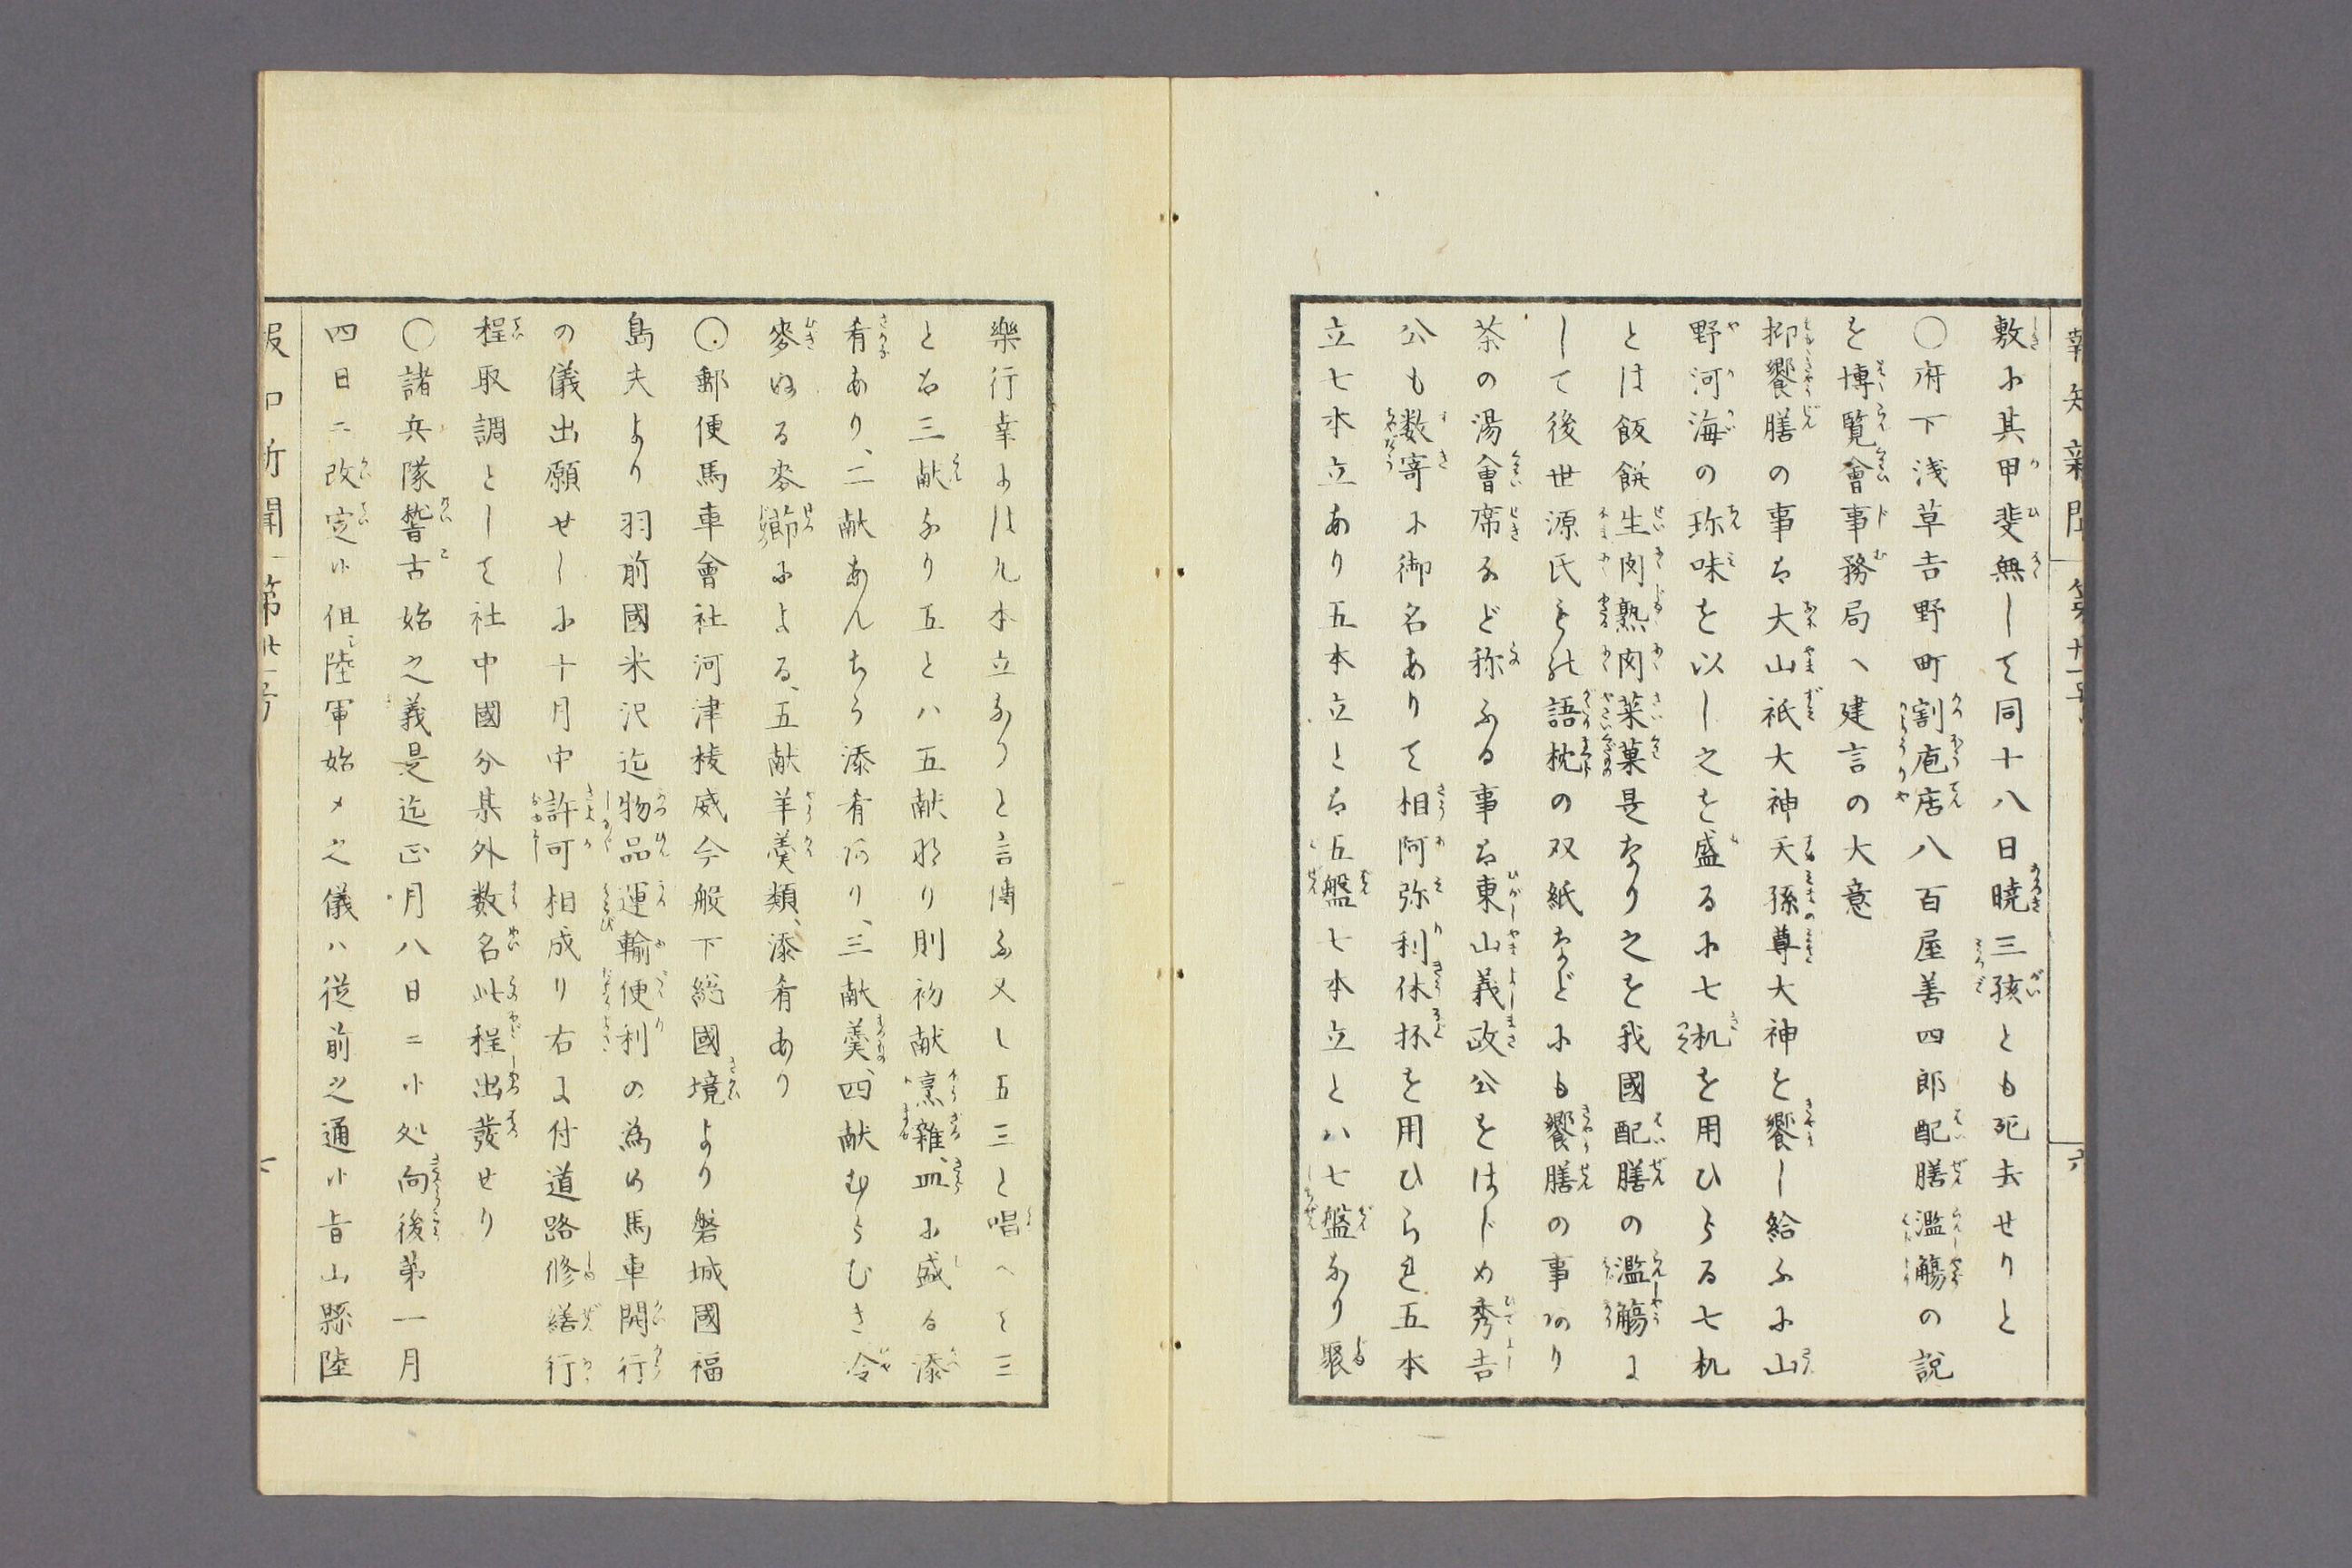 報知新聞 第廿一号 六
敷小其甲斐無して同十八日暁三孩とも死去せりと
〇府下浅草吉野町割庖店八百屋善四郎配膳濫觴の説
を博覧會事務局へ建言の大意
抑饗膳の事は大山祇大神天孫尊大神を饗し給ふ小山
野河海の珎味を以し之を盛る小七机を用ひらる七机
とは飯餅生肉熟肉菜菓是なり之を我國配膳の濫觴に
して後世源氏物語枕の双紙などにも饗膳の事あり
茶の湯會席など称ふる事は東山義政公をはじめ秀吉
公も数寄小御名ありて相阿弥利休抔を用ひられ五本
立七本立あり五本立とは五盤七本立とハ七盤なり聚
樂行幸には九本立なりと言傳ふ又し五三と唱へて三
とは三献なり五とハ五献なり則初献烹雑、皿小盛る添
肴あり、二献あんちう添肴あり、三献羹、四献むしむき冷
麥ぬる麥節による、五献羊羹類、添肴あり
〇郵便馬車會社河津棱威今般下総國境より磐城國福
島夫より羽前國米沢迄物品運輸便利の為め馬車開行
の儀出願せし小十月中許可相成り右に付道路修繕行
程取調として社中國分某外数名此程出發せり
〇諸兵隊謷古始之義是迄正月八日ニ小処向後第一月
四日ニ改定小但陸軍始メ之儀ハ従前之通小旨山縣陸
報知新聞 第廿一号